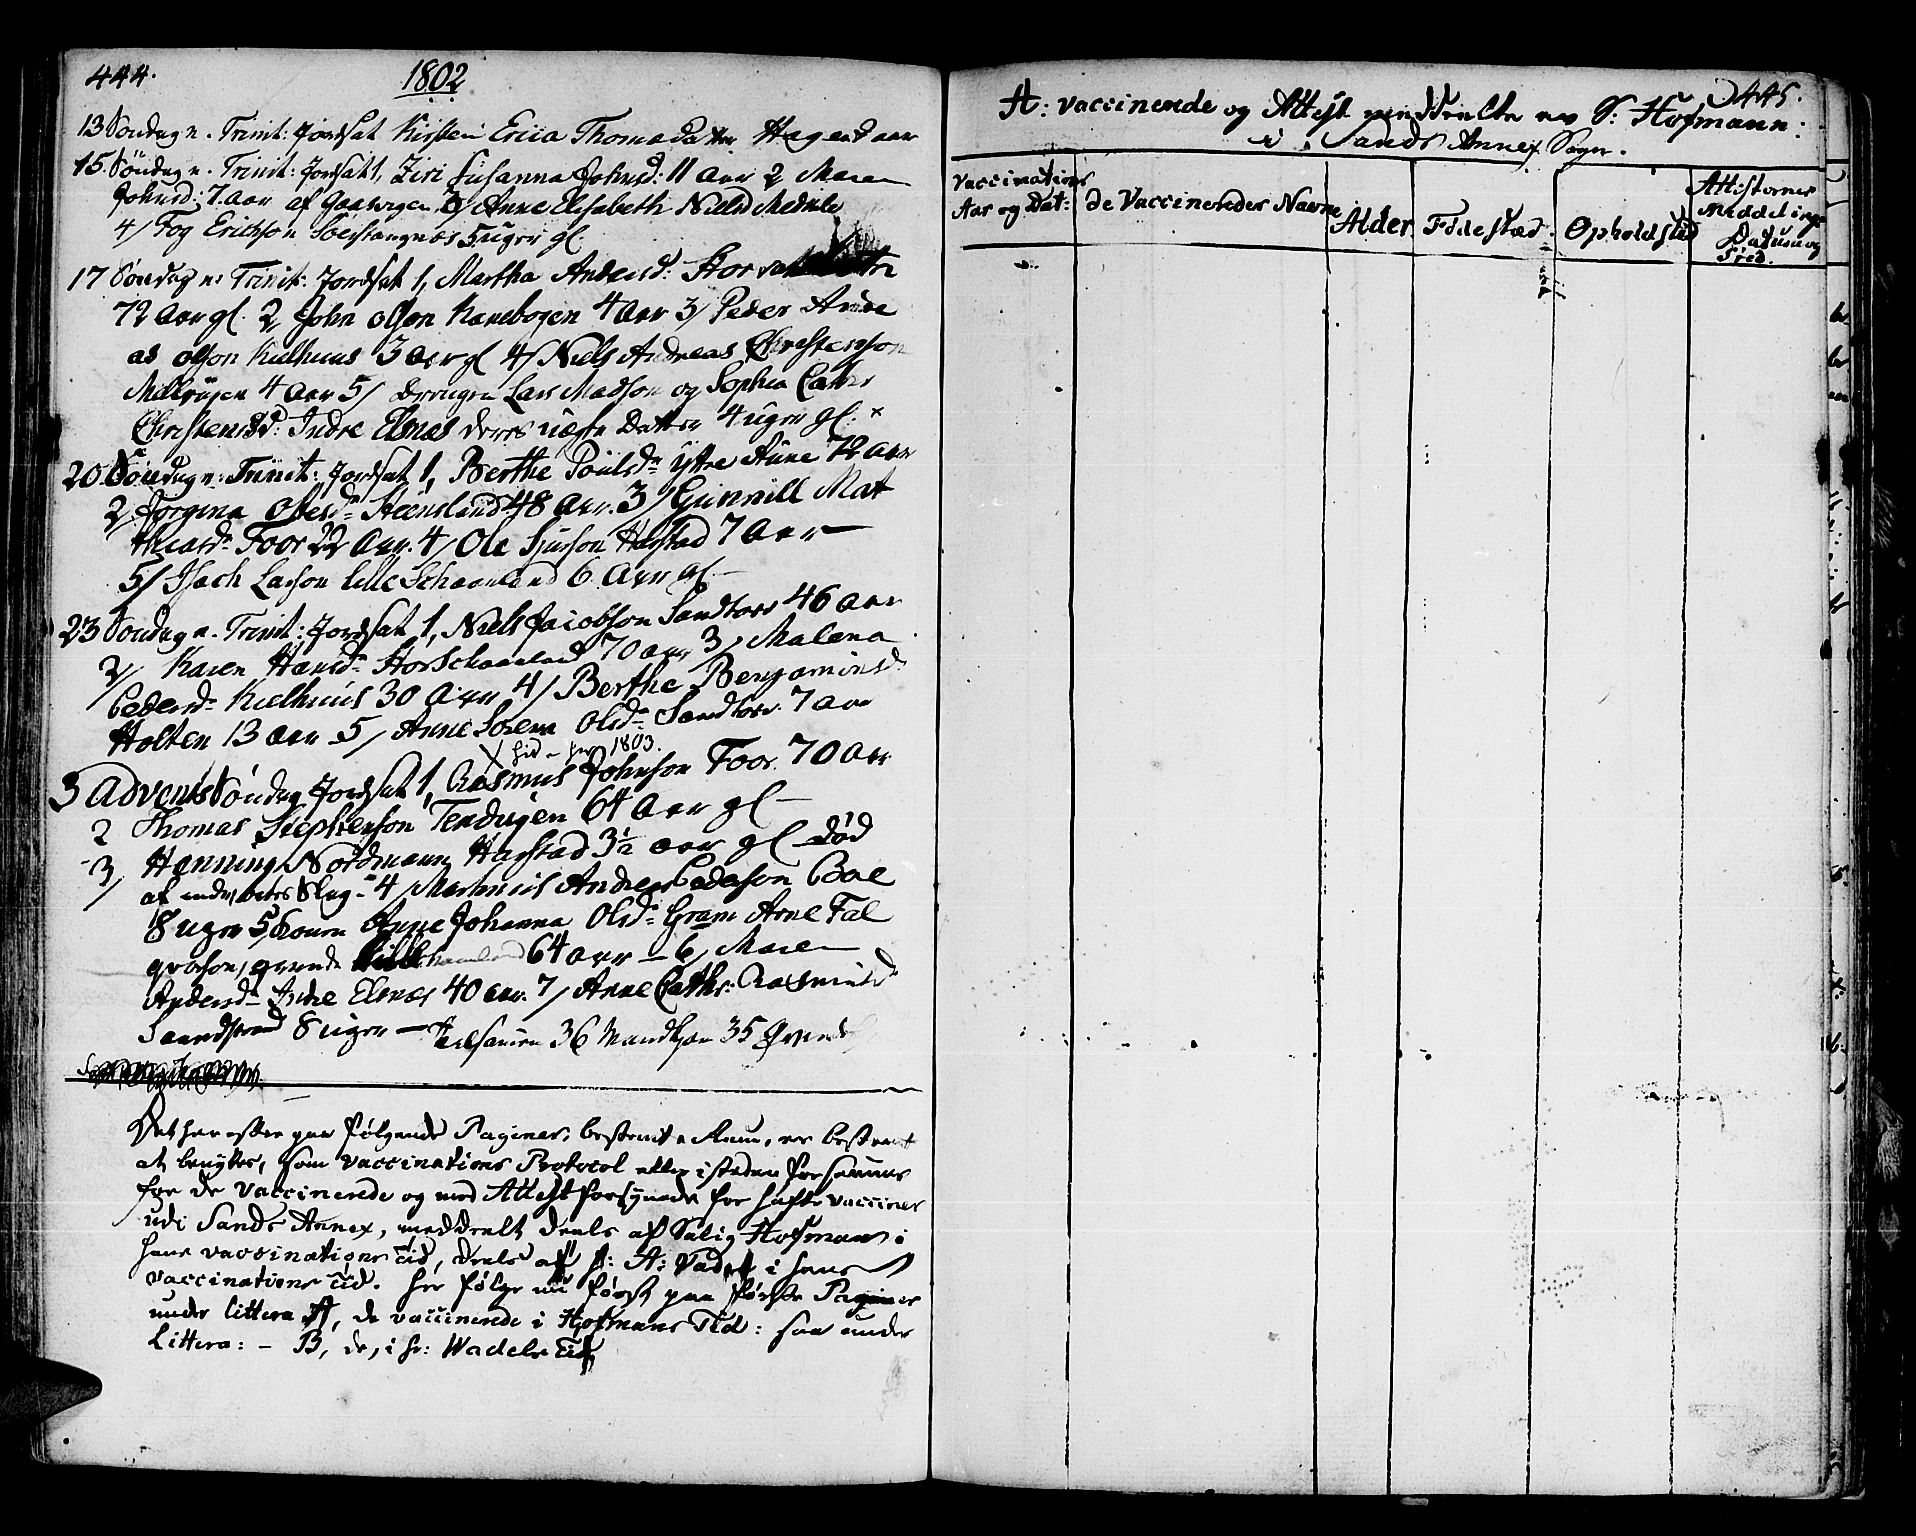 444.
1802
13 Søndag n. Trinit: Jordsat Kirsten Thomædatter Hagen aar
15. Søndag n. Trinit: Jordsat 1, Ziri Susanna Johnsd: 11 aar 2 Maren
Johnsd: 7. aar af 3/ Anne Elisabeth Nielsd
4/ Fog Erichson 5 uger gl.
17 Søndag n: Trinit: Jordsat 1, Martha Andersd:
72 aar gl. 2, John Olson Kanebogen 4 aar 3/ Peder Andre
as Olson Kielhuus 3 aar gl 4/ Niels Andreas Christenson
4 aar 5/ Lars Madson og Sophia Cathr
Christensd: Indre Elsnæs deres uægte Datter 4 uger gl. x
20. Søndag n: Trinit: Jordsat 1, Berthe Poulsdr ytre 72 aar
2, Jorgina Olesdr Steensland 48 aar. 3/ Gunnill Mat
thiasdr Foor 22 aar. 4/ Ole Sjurson Harstad 7 aar
5/ Isach Larson Lille Schaanland 6 aar gl.
23 Søndag n. Trinit: Jordsat 1, Niels Jacobson Sandtorv 46 aar
2/ Karen Hansdr Storschaanland 70 aar 3, Malena
Pedersdr Kielhuus 30 aar 4/ Berthe Benjaminsd:
Holten 13 aar 5/ Anne Sorena Olsdr Sandtorv. 7 aar
1803.
3 Advents Søndag Jordsat 1, Rasmus Johnson Foor 70 aar
2 Thomas Stephenson 64 aar gl
3/ Henning Nordmann Harstad 3½ aar gl død
af 4/ Marthinus Andreas Pederson
18 uger 5, Konen Anne Johanna Olsdr Gram Arne Fal
qvorson, 64 aar – 6, Maren
Andersdr Indre Elsnæs 40 aar. 7/ Anne Cathr: Rasmusdr
Sandstrand 8 uger – Tilsamen 36 Mandkjøn 35 Qvinde
Det her efter paa følgende Paginer, bestemte Rum, er bestemt
at benyttes, som Vaccinations Protocol eller isteden for samme
for de Vaccinerede og med Attest forsynede for hafte vacciner
udi Sands Annex, meddeelt deels af Salig Hofman i
hans vaccinations tid, deels af hr: A: i hans
vaccinations tid. her følge nu først paa første Paginer
under littera A, de vaccinerede i Hofmans Tid: saa under
Littera: – B, de, i hr: Wadels tid
445.
A: vaccinerede og Attest meddeelte av S: Hofmann:
i Sands Annex Sogn.
Vaccinations
Aar og Dat:
de Vaccineredes Navne
Alder
Fødested
Opholdsted
Attesternes
Meddelings
Datum og
Sted.